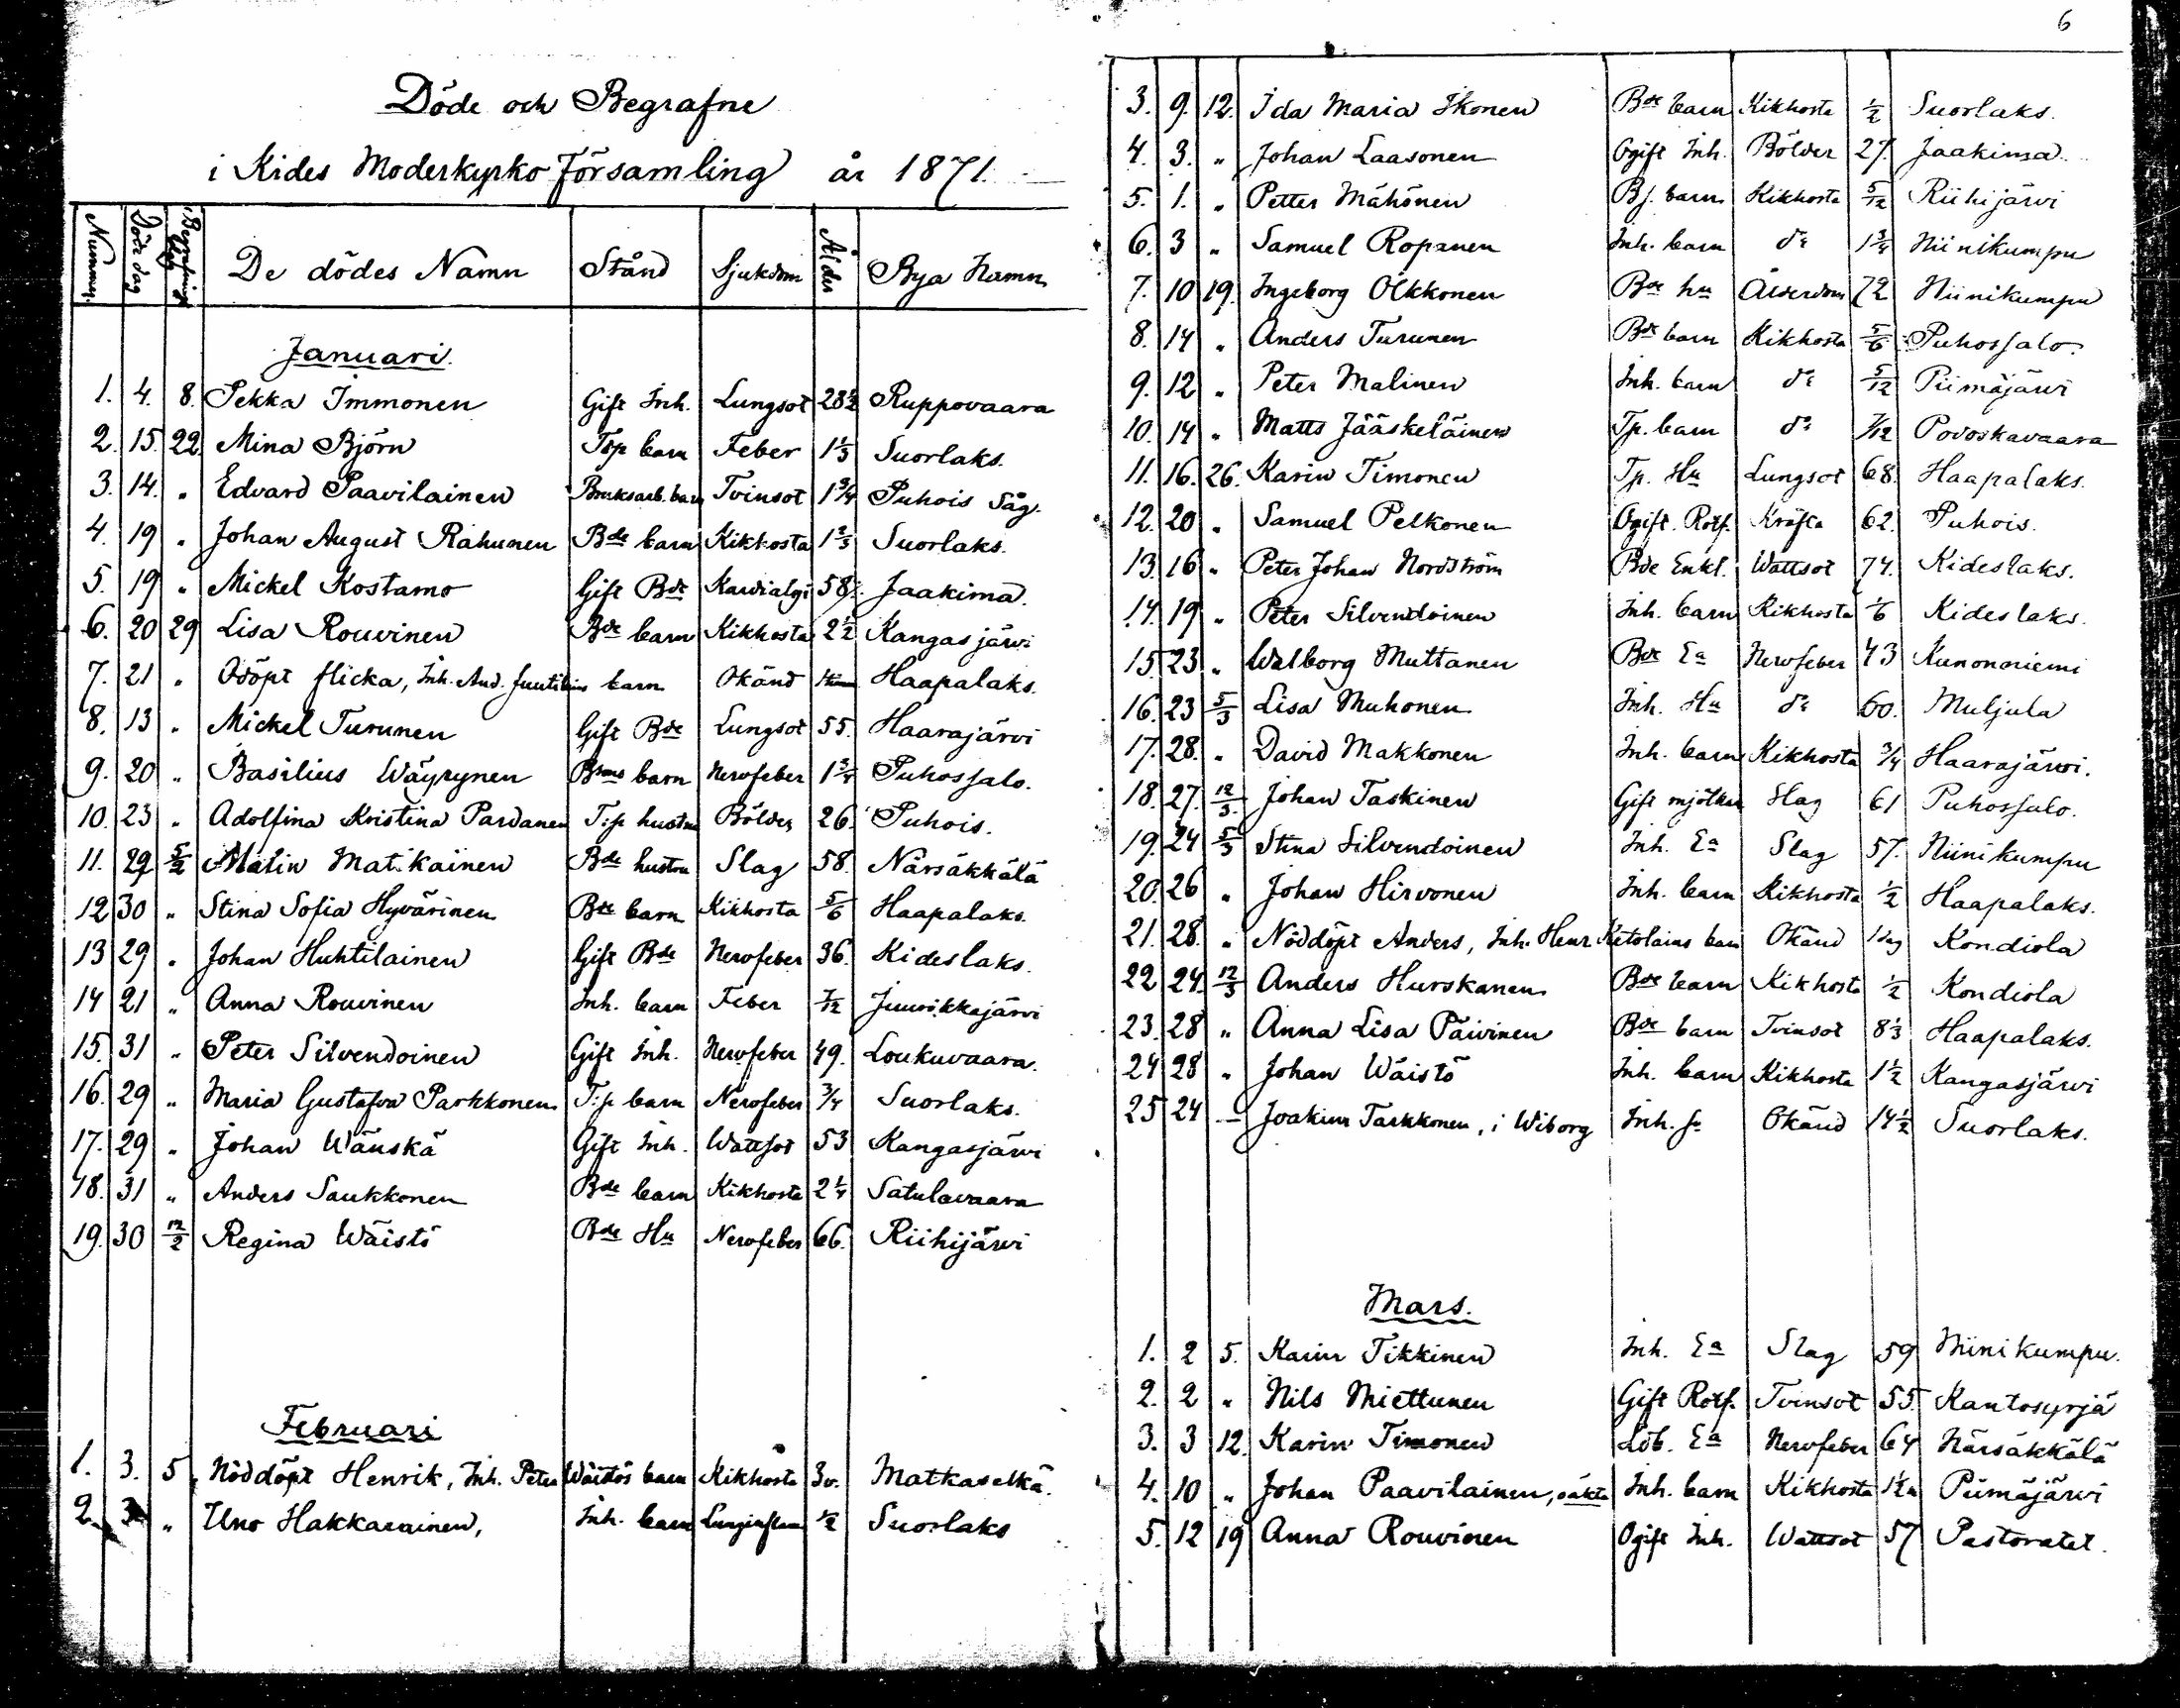 Döde och Begrafne
i Kides Moderkyrko Församling år 1871.
Nummer. Döde dag Begrafnings dag De dödes Namn Stånd Sjukdom Ålder Bya Namn
Januari.
1. 4. 8. Pekka Immonen Gift Inh. Lungsot 28½ Ruppovaara
2. 15. 22. Mina Björn Torp barn Feber 1⅓ Suorlaks.
3. 14. " Edvard Paavilainen Bruksarb. barn Tvinsot 1¾ Puhois Såg.
4. 19 " Johan August Rahunen Bde barn Kikhosta 1⅔ Suorlaks.
5. 19 " Mickel Kostamo Gift Bde Kardialgi 58. Jaakima.
6. 20 29 Lisa Rouvinen Bde barn Kikhosta 2½ Kangasjärvi
7. 21 " Odöpt flicka, Inh. And. barn Okänd Haapalaks.
8. 13 " Mickel Turunen Gift Bde Lungsot 55. Haarajärvi
9. 20 " Basilius Wäyrynen barn Nervfeber 1¾ Puhossalo.
10. 23 " Adolfina Kristina Pardanen T:p hustru Bölder 26. Puhois.
11. 29 5/2 Malin Matikainen Bde hustru Slag 58. Närsäkkälä
12 30 " Stina Sofia Hyvärinen Bde barn Kikhosta 5/6 Haapalaks.
13 29 " Johan Huhtilainen Gift Bde Nervfeber 36. Kideslaks.
14 21 " Anna Rouvinen Inh. barn Feber 7/12 Juurikkajärvi
15. 31 " Peter Silvendoinen Gift Inh. Nervfeber 49. Loukuvaara.
16. 29 " Maria Gustafva Parkkonen T:p barn Nervfeber ¾ Suorlaks.
17. 29 " Johan Wänskä Gift Inh. Wattsot 53 Kangasjärvi
18. 31 " Anders Saukkonen Bde barn Kikhosta 2¼ Satulavaara
19. 30 12/2 Regina Wäistö Bde Hu Nervfeber 66. Riihijärvi
Februari
1. 3. 5 Nöddöpt Henrik, Inh. Peter Wäistös barn Kikhosta 3v. Matkaselkä.
2. 3 " Uno Hakkarainen, Inh. barn ½ Suorlaks
6
3. 9. 12. Ida Maria Ikonen Bde barn Kikhosta ½ Suorlaks.
4. 3. " Johan Laasonen Ogift Inh. Bölder 27. Jaakima.
5. 1. " Petter Mähönen Bf. barn Kikhosta 5/12 Riihijärvi
6. 3 " Samuel Ropanen Inh. barn do 1¾ Niinikumpu
7. 10 19. Ingeborg Olkkonen Bde hu Ålderdom 72 Niinikumpu
8. 14 " Anders Turunen Bde barn Kikhosta 5/6 Puhossalo.
9. 12 " Peter Malinen Inh. barn do 5/12 Piimäjärvi
10. 14 " Matts Jääskeläinen Tp. barn do 7/12 Povoskavaara
11. 16. 26. Karin Timonen Tp. Hu Lungsot 68. Haapalaks.
12. 20 " Samuel Pelkonen Ogift. Rotf. Kräfta 62. Puhois.
13. 16 " Peter Johan Nordström Bde Enkl. Wattsot 74. Kideslaks.
14. 19 " Peter Silvendoinen Inh. barn Kikhosta 1/6 Kideslaks.
15. 23 " Walborg Muttanen Bde Ea Nervfeber 43 Kunonniemi
16. 23 5/3 Lisa Muhonen Inh. Hu do 60. Muljula
17. 28. " David Makkonen Inh. barn Kikhosta ¾ Haarajärvi.
18. 27. 12/3. Johan Taskinen Gift Slag 61 Puhossalo.
19. 24 5/3 Stina Silvendoinen Inh. Ea Slag 57. Niinikumpu
20. 26 " Johan Hirvonen Inh. barn Kikhosta ½ Haapalaks.
21. 28. " Nöddöpt Anders, Inh. Henr Ketolains barn Okänd Kondiola
22 24. 12/3 Anders Hurskanen Bde barn Kikhosta ½ Kondiola
23. 28 " Anna Lisa Päivinen Bde barn Tvinsot 8⅓ Haapalaks.
24 28 " Johan Wäistö Inh. barn Kikhosta 1½ Kangasjärvi
25 24 — Joakim Tarkkonen, i Wiborg Inh. Okänd 14½ Suorlaks.
Mars.
1. 2 5. Karin Tikkinen Inh. Ea Slag 59 Niinikumpu.
2. 2 " Nils Miettunen Gift Rotf. Tvinsot 55. Kantosyrjä
3. 3 12. Karin Timonen Ea Nervfeber 64 Närsäkkälä
4. 10 " Johan Paavilainen, oäkta Inh. barn Kikhosta Piimäjärvi
5. 12 19 Anna Rouvinen Ogift Inh. Wattsot 57 Pastoratet.